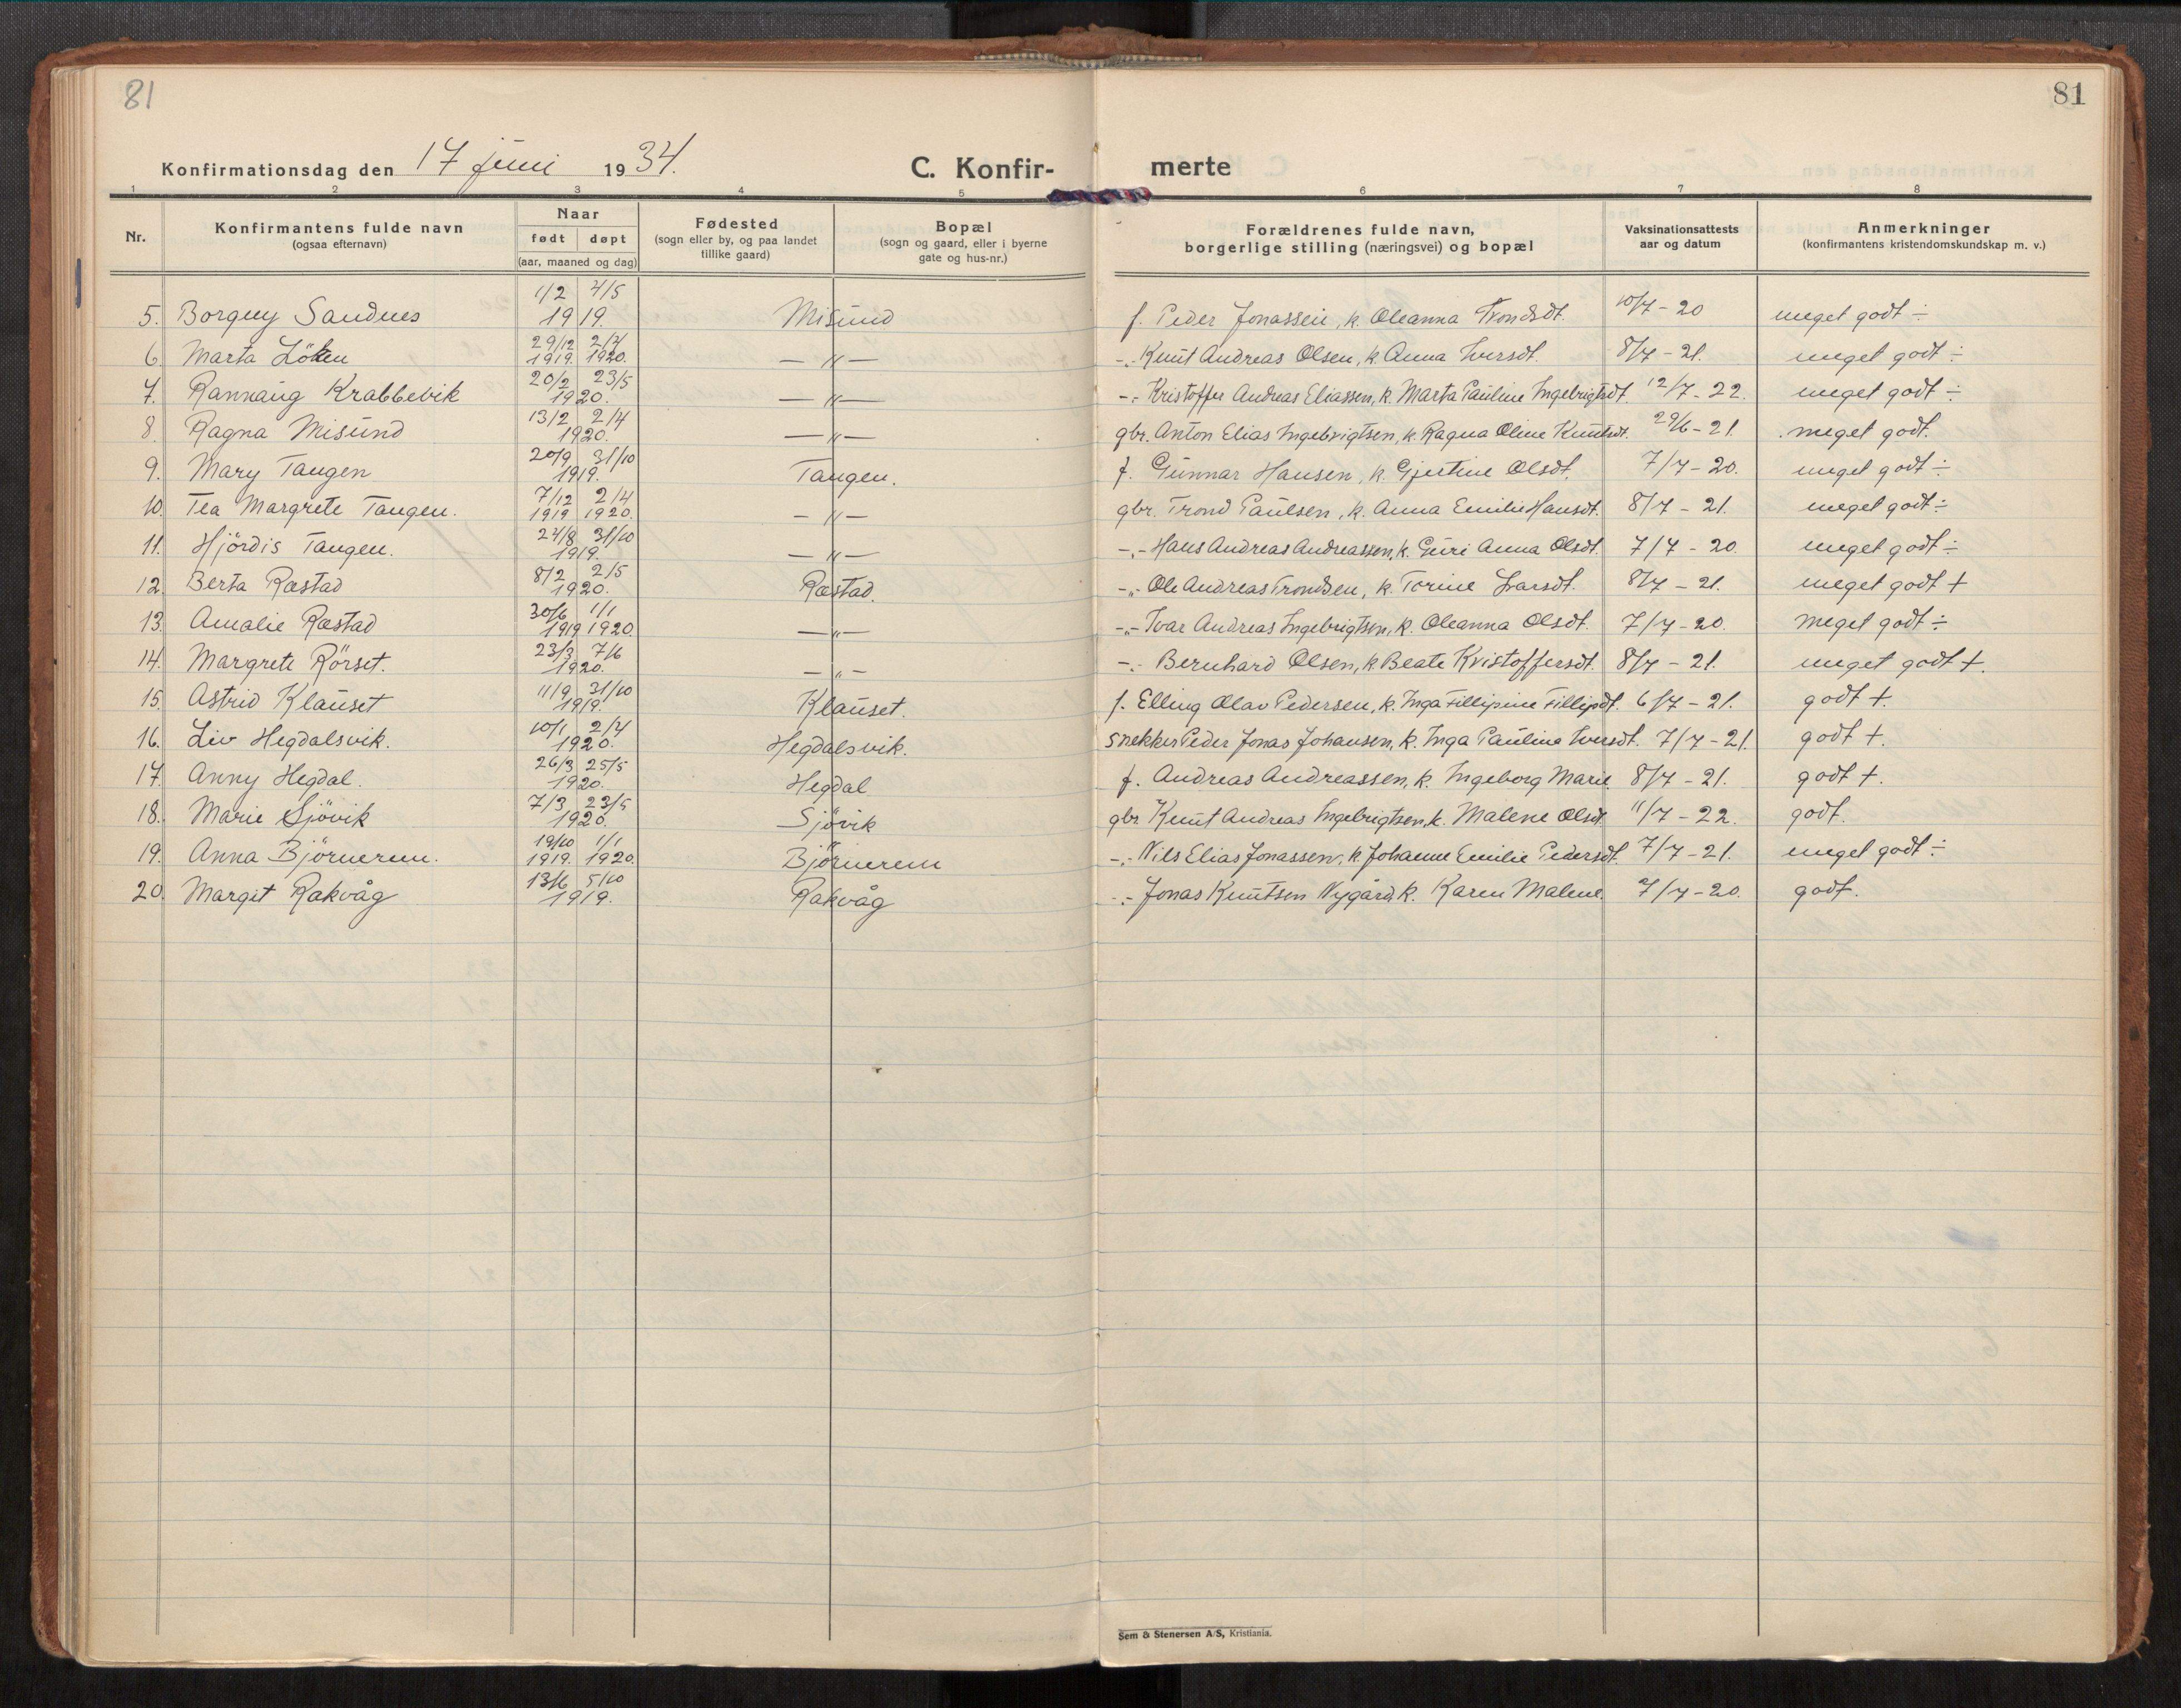 81
81
Konfirmationsdag den 17 juni 1934.
C. Konfir-
merte
1 2 3 4 5 6 7 8
Nr.
Konfirmantens fulde navn
(ogsaa efternavn)
Naar
født døpt
(aar, maaned og dag)
Fødested
(sogn eller by, og paa landet
tillike gaard)
Bopæl
(sogn og gaard, eller i byerne
gate og hus-nr.)
Forældrenes fulde navn,
borgerlige stilling (næringsvei) og bopæl
Vaksinationsattests
aar og datum
Anmerkninger
(konfirmantens kristendomskundskap m. v.)
5. Borguy Sandnes 1/2 4/5 1919. Misund f. Peder Jonassen, k. Oleanna Trondsdt. 10/7 - 20 meget godt ÷
6. Marta Löken 29/12 1919. 2/4 1920. — „ — -„- Knut Andreas Olsen, k. Anna Iversdt. 8/7 - 21. meget godt ÷
7. Rannaug Krabbevik 20/2 23/5 1920. — „ — -„- Kristoffer Andreas Eliassen, k. Marta Pauline Ingebrigtsdt. 12/7 - 22. meget godt ÷
8. Ragna Misund 13/2 2/4 1920. — „ — gbr. Anton Elias Ingebrigtsen, k. Ragna Oline Knutsdt. 29/6 - 21. meget godt.
9. Mary Tangen 20/9 31/10 1919. Tangen. f. Gunnar Hansen, k. Gjertine Olsdt. 7/7 - 20. meget godt ÷
10. Tea Margrete Tangen. 7/12 1919 2/4 1920. — „ — gbr. Trond Paulsen, k. Anna Emilie Hansdt. 8/7 - 21. meget godt ÷
11. Hjördis Tangen. 24/8 31/10 1919. — „ — -„- Hans Andreas Andreassen, k. Guri Anna Olsdt. 7/7 - 20. meget godt ÷
12. Berta Ræstad 8/2 2/5 1920. Ræstad. -„- Ole Andreas Trondsen, k. Torine Larsdt. 8/7 - 21. meget godt +
13. Amalie Ræstad 30/6 1919 1/1 1920. — „ — -„- Ivar Andreas Ingebrigtsen, k. Oleanna Olsdt. 7/7 - 20. meget godt ÷
14. Margrete Rörset. 23/3 7/6 1920. — „ — -„- Bernhard Olsen, k. Beate Kristoffersdt. 8/7 - 21. meget godt +.
15. Astrid Klauset 11/9 31/10 1919. Klauset. f. Elling Olav Pedersen, k. Inga Fillipine Fillipdt. 6/7 - 21. godt +.
16. Liv Hegdalsvik. 10/1 2/4 1920. Hegdalsvik. snekker Peder Jonas Johansen, k. Inga Pauline Iversdt. 7/7 - 21. godt +.
17. Anny Hegdal. 26/3 25/5 1920. Hegdal f. Andreas Andreassen, k. Ingeborg Marie. 8/7 - 21. godt +.
18. Marie Sjövik 7/3 23/5 1920. Sjövik gbr. Knut Andreas Ingebrigtsen, k. Malene Olsdt. 11/7 - 22. godt.
19. Anna Björnerem. 19/10 1919. 1/1 1920. Björnerem -„- Nils Elias Jonassen, k. Johanne Emilie Pedersdt. 7/7 - 21. meget godt ÷
20. Margit Rakvåg 13/6 5/10 1919. Rakvåg -„- Jonas Knutsen Nygård, k. Karen Malene. 7/7 - 20. godt.
Sem & Stenersen A/S, Kristiania.